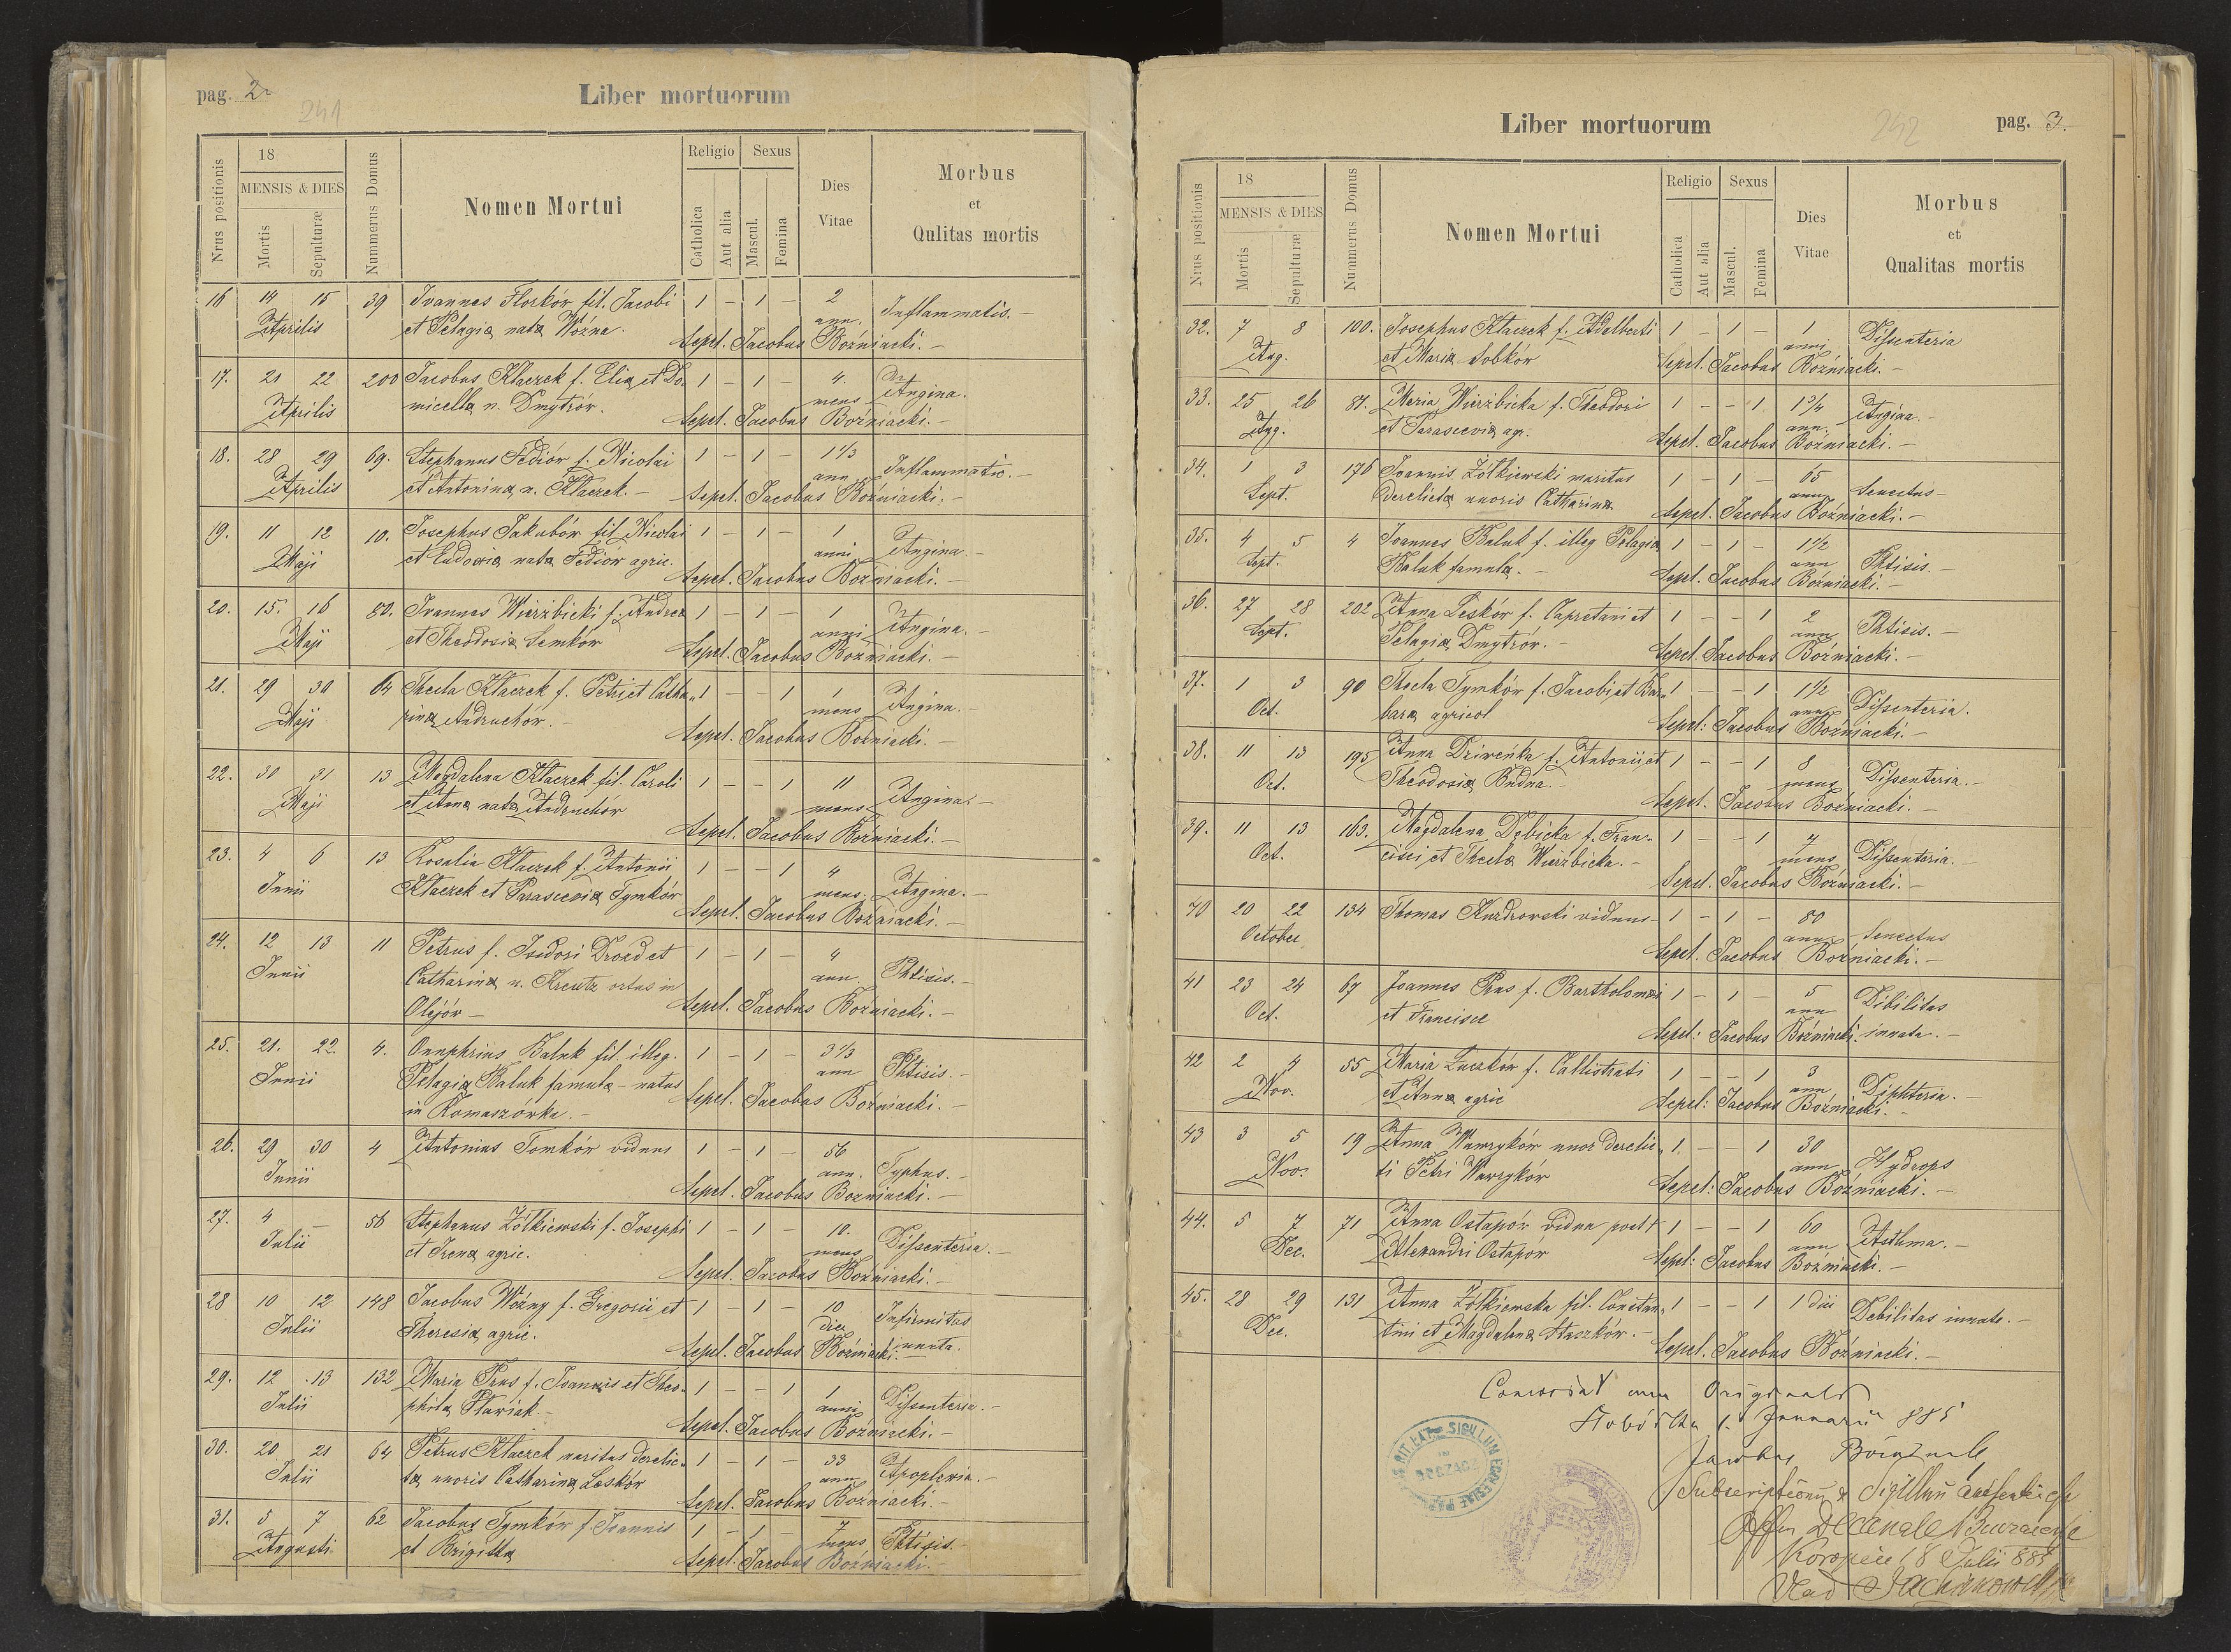 pag. 2
241
Liber mortuorum
Nrus positionis
18
MENSIS & DIES
Mortis
Sepulturæ
Nummerus Domus
Nomen Mortui
Religio
Catholica
Aut alia
Sexus
Mascul.
Femina
Dies
Vitae
Morbus
et
Qulitas mortis
16 14 15 39 Ioannes Florków fil. Jacobi 1 – 1 – 2 Inflammatis. –
Aprilis et Pelagia nata Woźna. ann.
Sepel. Jacobus Boźniacki. –
17. 21 22 200 Jacobus Klaczek f. Elia et Do- 1 – 1 – 4. Angina.
Aprilis micella n. Dmytrów. mens
Sepel. Jacobus Boźniacki. –
18. 28 29 69. Stephanus Fediów f. Nicolai 1 – 1 – 1 1/3 Inflammatio. –
Aprilis et Antonina n. Klaczek. – ann
Sepel. Jacobus Boźniacki. –
19. 11 12 10. Josephus Jakubów fil. Nicolai 1 – 1 – 1 Angina. –
Maji et Eudoxia nata Fediów agric. anni
Sepel. Jacobus Boźniacki. –
20. 15. 16 80. Ioannes Wierzbicki f. Andrea 1 – 1 – 1 Angina. –
Maji et Theodosia Semków anni
Sepel. Jacobus Boźniacki. –
21. 29 30 64 Thecla Klaczek f. Petri et Catha- 1 – – 1 1 Angina. –
Maji rina Andruchów. – mens
Sepel. Jacobus Boźniacki. –
22. 30 31 13 Magdalena Klaczek fil. Caroli 1 – – 1 11 Angina. –
Maji et Anna nata Andruchów mens
Sepel. Jacobus Boźniacki. –
23. 4 6 13 Rosalia Klaczek f. Antonii 1 – – 1 4 Angina. –
Junii Klaczek et Parascevia Tymków mens.
Sepel. Jacobus Boźniacki. –
24. 12 13 11 Petrus f. Isidori Drozd et 1 – 1 – 4 Phtisis. –
Junii Catharina n. Kreutz ortus in ann
Olejów – Sepel. Jacobus Boźniacki. –
25. 21. 22. 4. Onuphrius Baluk fil. illeg. 1 – 1 – 3 1/3 Phtisis. –
Junii Pelagia Baluk famula – natus ann
in Komaszówka. – Sepel. Jacobus Boźniacki. –
26. 29 30 4 Antonius Tomków viduus 1 – 1 – 56 Typhus. –
Junii ann.
Sepel. Jacobus Boźniacki. –
27. 4 – 56 Stephanus Żółkiewski f. Josephi 1 – 1 – 10. Dissenteria. –
Julii et Irena agric. mens
Sepel. Jacobus Boźniacki. –
28 10 12 148 Jacobus Woźny f. Gregorii et 1 – 1 – 10 Infirmitas
Julii Theresia agric. dies innata.
Sepel. Jacobus Boźniacki. –
29. 12 13 132 Maria Prus f. Ioannis et Theo- 1 – – 1 1 Dissenteria. –
Julii phila Pławiak – anni
Sepel. Jacobus Boźniacki. –
30. 20 21 64 Petrus Klaczek maritus derelic- 1 – 1 – 33 Apoplexia. –
Julii ta uxoris Catharina Leśków ann
Sepel. Jacobus Boźniacki. –
31. 5 7 62 Jacobus Tymków f. Ioannis 1 – 1 – 7 Phtisis. –
Augusti et Brigitta mens
Sepel. Jacobus Boźniacki. –
Liber mortuorum
242
pag. 3.
Nrus positionis
18
MENSIS & DIES
Mortis
Sepulturæ
Nummerus Domus
Nomen Mortui
Religio
Catholica
Aut alia
Sexus
Mascul.
Femina
Dies
Vitae
Morbus
et
Qualitas mortis
32. 7 8 100. Josephus Klaczek f. Adalberti 1 – 1 – 1 Dissenteria
Aug. et Maria Sobków anni
Sepel. Jacobus Boźniacki. –
33. 25 26 81. Maria Wierzbicka f. Theodori 1 – – 1. 1 3/4 Angina. –
Aug. et Parascevia agr. ann.
Sepel. Jacobus Boźniacki. –
34. 1 3 176 Joannis Żółkiewski maritus 1 – 1 – 65 Senectus –
Sept. derelicta uxoris Catharina ann
Sepel. Jacobus Boźniacki. –
35. 4 5 4 Joannes Baluk f. illeg Pelagia 1 – 1 – 1 1/2 Phtisis. –
Sept. Baluk famula. – ann
Sepel. Jacobus Boźniacki. –
36. 27 28 202 Anna Leśków f. Capretani et 1 – – 1 2 Phtisis. –
Sept. Pelagia Dmytrów. – ann
Sepel. Jacobus Boźniacki. –
37. 1 3 90 Thecla Tymków f. Jacobi et Bar- 1 – – 1 1 1/2 Dissenteria.
Oct. bara agricol ann
Sepel: Jacobus Boźniacki. –
38. 11 13 195 Anna Dziweńka f. Antonii et 1 – – 1 8 Dissenteria. –
Oct. Theodosia Budna. – mens
Sepel. Jacobus Boźniacki. –
39. 11 13 163. Magdalena Dębicka f. Fran- 1 – – 1 7 Dissenteria. –
Oct. cisci et Thecla Wierzbicka. – mens
Sepel. Jacobus Boźniacki. –
40 20 22 134 Thomas Kuzdrowski viduus – 1 – 1 – 80 Senectus
October ann
Sepel. Jacobus Boźniacki. –
41 23 24 67 Joannes Prus f. Bartholomæi 1 – 1 – 5 Dibilitas
Oct. et Francisce ann innata. –
Sepel: Jacobus Boźniacki.
42 2 4 55 Maria Łuczków f. Callistrati 1 – – 1 3 Diphteria. –
Nov. et Anna agric ann
Sepel: Jacobus Boźniacki. –
43 3 5 19 Anna Wawryków uxor derelic- 1. – – 1 30 Hydrops
Nov. ti Petri Wawryków ann
Sepel: Jacobus Boźniacki. –
44. 5 7 71 Anna Ostapów vidua post † 1 – – 1 60 Asthma. –
Dec. Alexandri Ostapów ann
Sepel: Jacobus Boźniacki. –
45. 28 29 131 Anna Żółkiewska fil. Constan- 1 – – 1 1 dii Debilitas innata. –
Dec. tini et Magdalena Staszków. –
Sepel. Jacobus Boźniacki. –
Concordat cum Originali
1. Januarii 885
Jacobus
SIGILLUM ECCLESIAE
Subscriptionem & Sigillum
Decanale
8 Julii 885